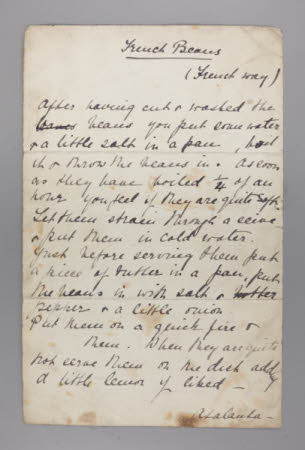 French Beans
(French way)
After having cut & washed the
beans you put some water
& a little salt in a pan, boil
it & throw the beans in. As soon
as they have boiled ¼ of an
hour you feel if they are quite soft.
Let them strain through a seive
& put them in cold water.
Just before serving them put
a piece of butter in a pan, put
the beans in with salt & butter
pepper & a little onion
Put them on a quick fire &
them. When they are quite
hot serve them on the dish adding
a little lemon if liked —